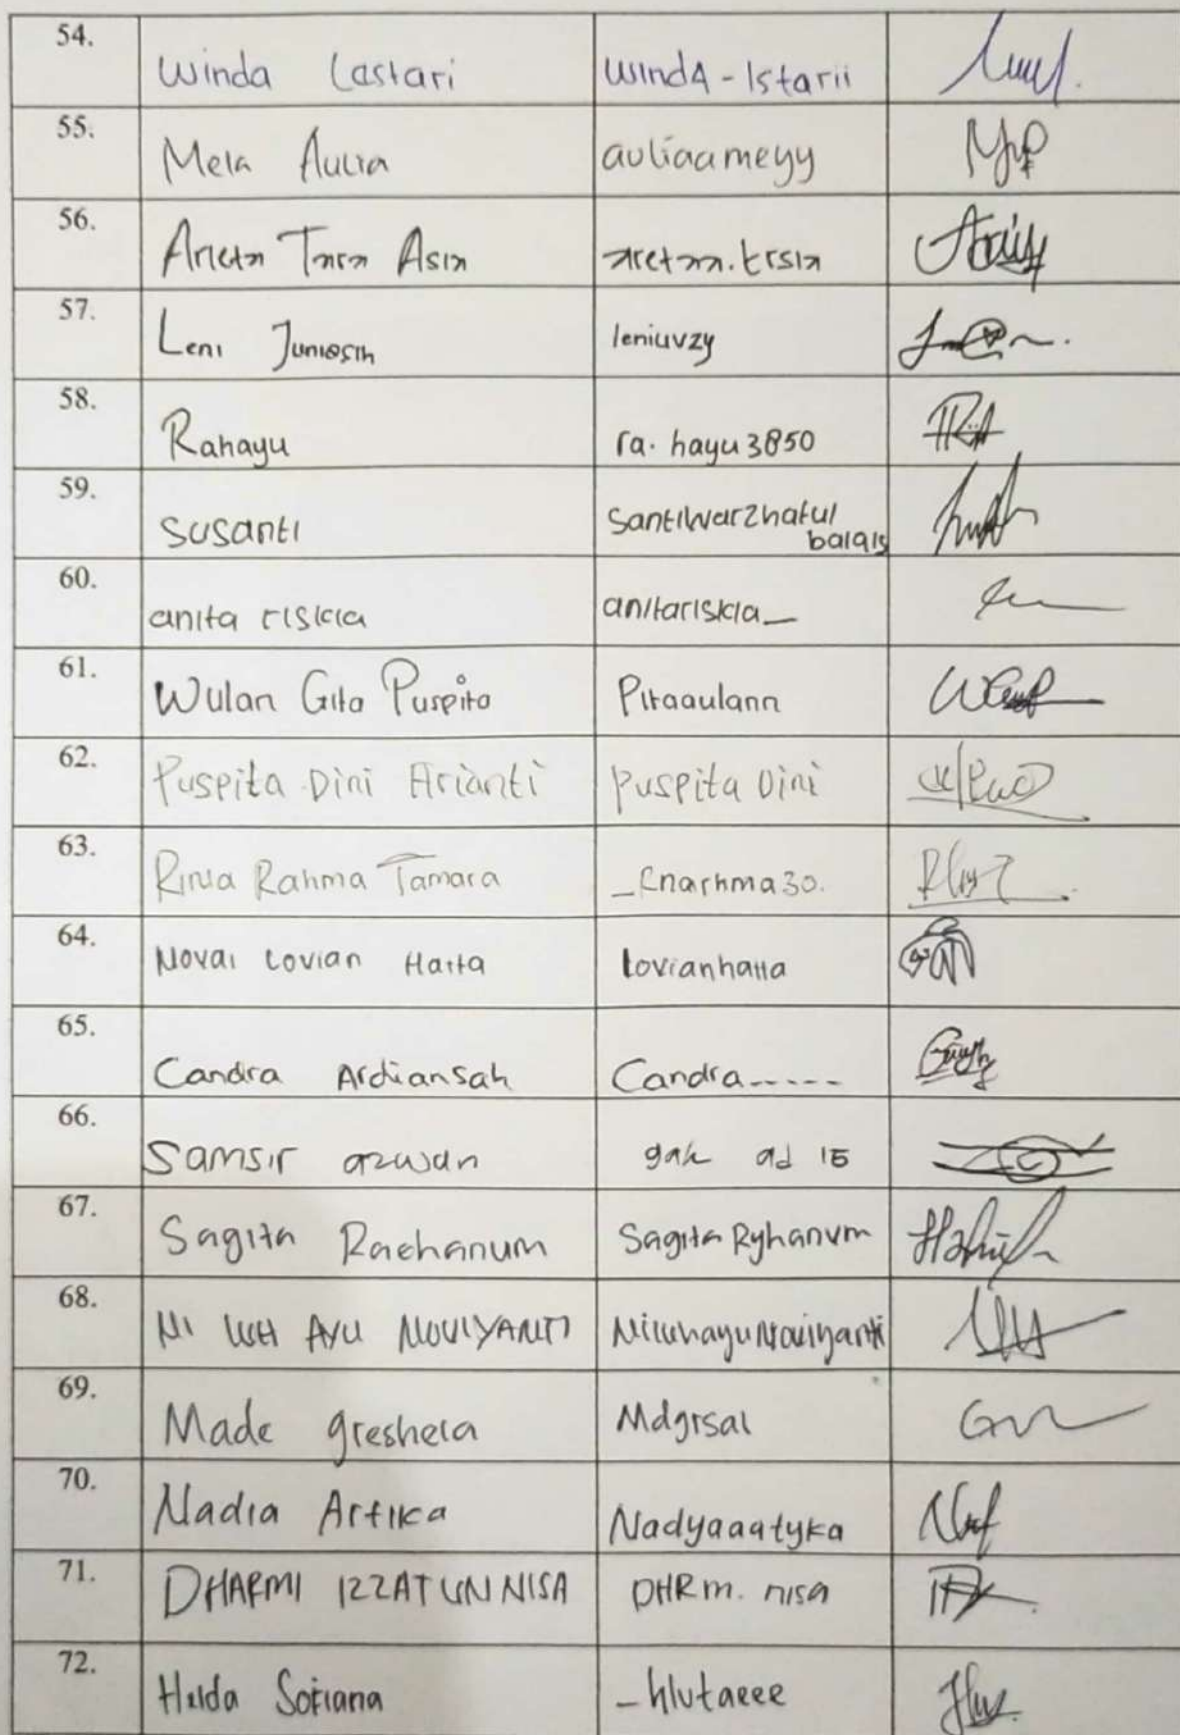 54. Winda Lastari winda-lstarii
55. Mela Aulia auliaameyy
56. Arieta Tara Asia aretaa.trsia
57. Leni Juniasih leniuvzy
58. Rahayu ra.hayu3850
59. Susanti Santiwarzhatul
balqis
60. anita riskia anitariskia_
61. Wulan Gita Puspita Pitaaulann
62. Puspita Dini Arianti puspita Dini
63. Rinia Rahma Tamara _rnarhma30.
64. Noval Lovian Hatta lovianhatta
65. Candra Ardiansah Candra-----
66. Samsir azwan gak ad IG
67. Sagita Raehanum Sagita Ryhanum
68. NI LUH AYU NOVIYANTI Niluhayunoviyanti
69. Made greshela Mdgrsal
70. Nadia Artika Nadyaaatyka
71. DHARMI IZZATUNNISA DHRm.nisa
72. Helda Sofiana _hlutaeee